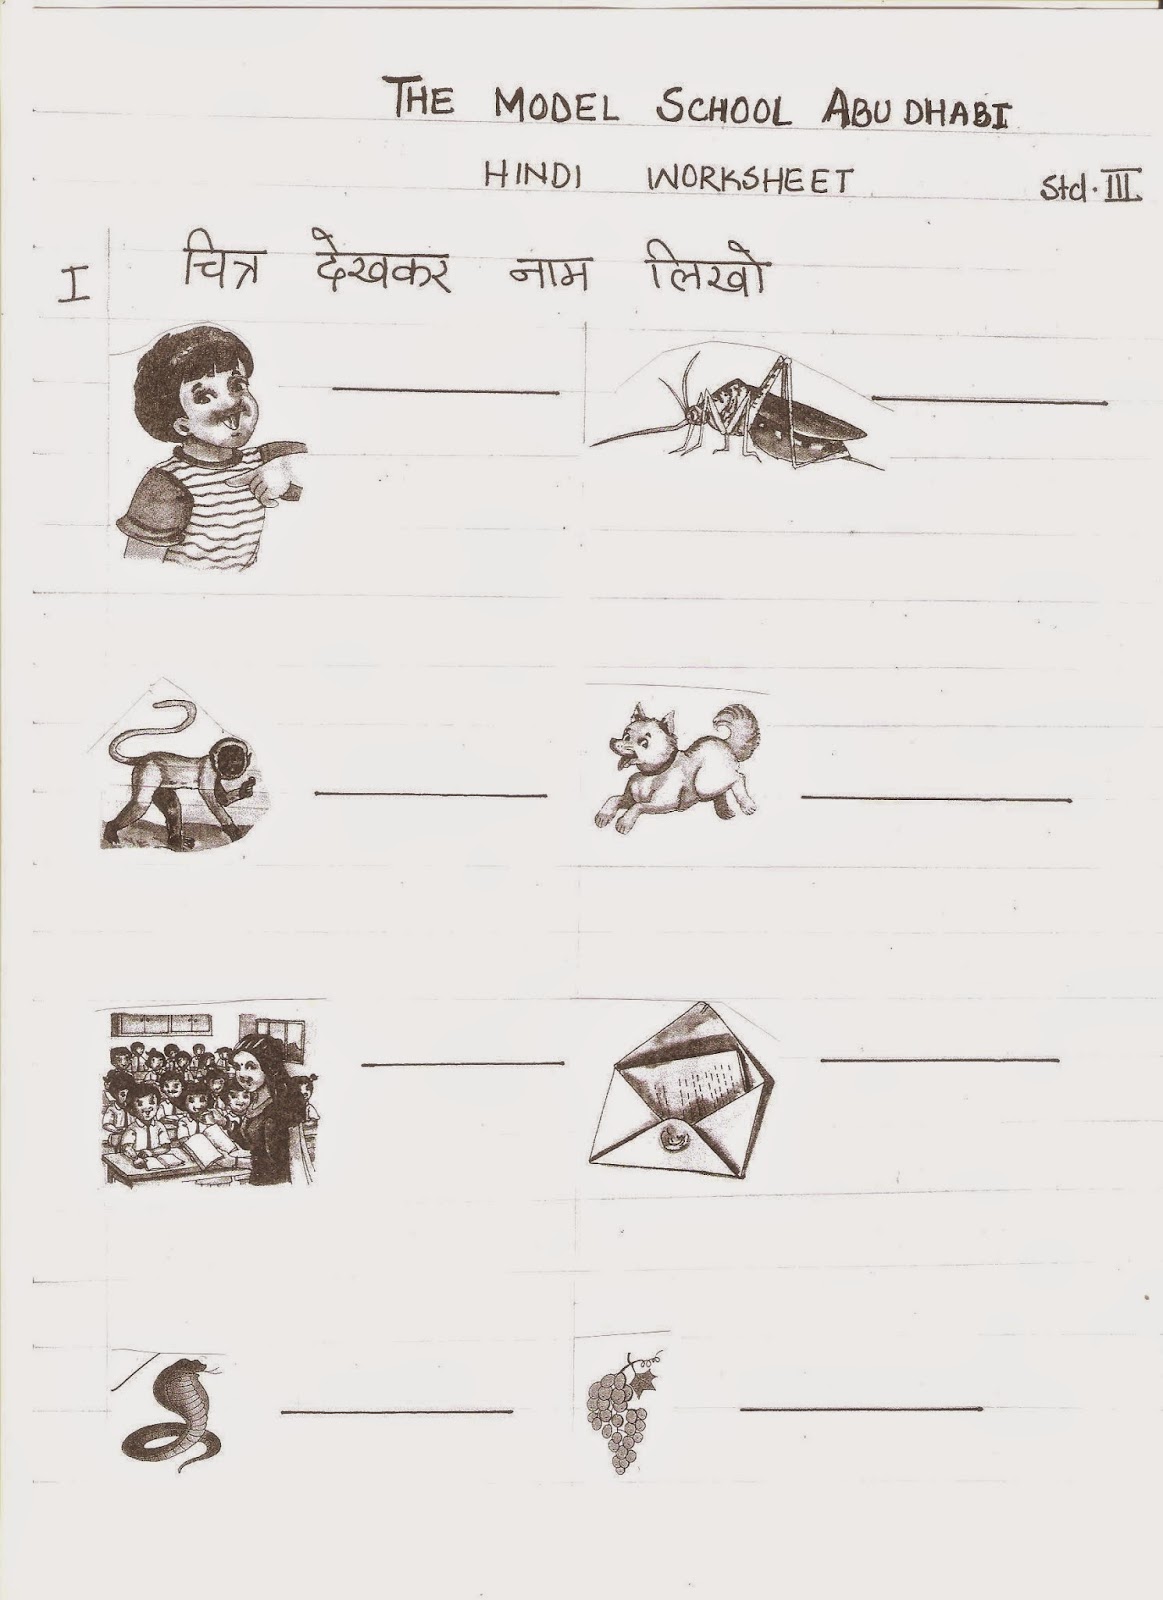 THE MODEL SCHOOL ABU DHABI
HINDI WORKSHEET Std. III
I चित्र देखकर नाम लिखो